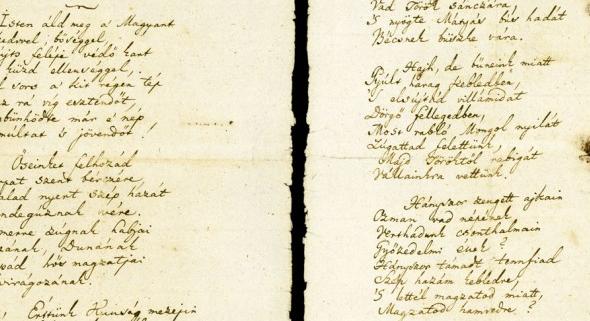 Isten áld meg a Magyart
edvvel, bőséggel,
yújts feléje védő kart
küzd ellenséggel,
l sors a kit régen tép
oz rá víg esztendőt,
bünhödte már e' nép
múltat 's jövendőt!
Őseinket felhozád
rpat szent bérczére,
alad nyert szép hazát
ndegúznak vére.
merre zúgnak habjai
zának, Dunának
pád hős magzatjai
virágozának.
, Értünk Kunság mezején
Vad Török sánczára,
'S nyögte Mátyás bús hadát
Bécsnek büszke vára.
Hajh, de büneink miatt
Gyúlt harag kebledben,
'S elsújtád villámidat
Dörgő fellegedben,
Most rabló Mongol nyilát
Zúgattad felettünk,
Majd Töröktől rabigát
Vállainkra vettünk.
Hányszor zengett ajkain
Ozmán vad népének
Vert hadunk csonthalmain
Győzedelmi ének?
Hányszor támadt tenfiad
Szép hazám kebledre,
'S lettél magzatod miatt,
Magzatod hamvedre?